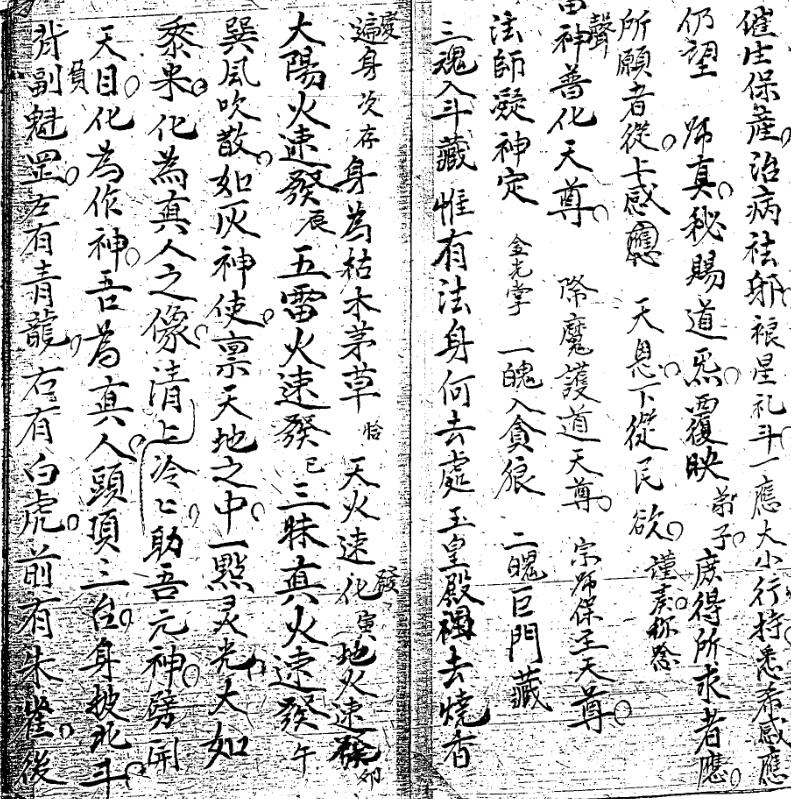 催生保產治病祛邪禳星礼斗一應大小行持悉希感應
仍望 师真秘賜道炁覆映弟子庶得所求者應
所願者從上感應 天恩下從民欲謹奏称念
雷神普化天尊 際魔護道天尊 宗师保王天尊
聲
法師凝神定 金光掌 一魄入貪狼 二魄巨門藏
三魂入斗藏惟有法身何去處玉皇殿裡去燒香
遍身次存身為枯木茅草恰天火速化寅地火速發卯
發
太陽火速發辰五雷火速發巳三昧真火速發午
巽風吹散如灰神使禀天地之中一點灵光大如
黍米化為真人之像清上冷匕助吾元神劈開
天目化為作神吾為真人頭項三台身披北斗
負
背副魁罡左有青龍右有白虎前有朱雀後